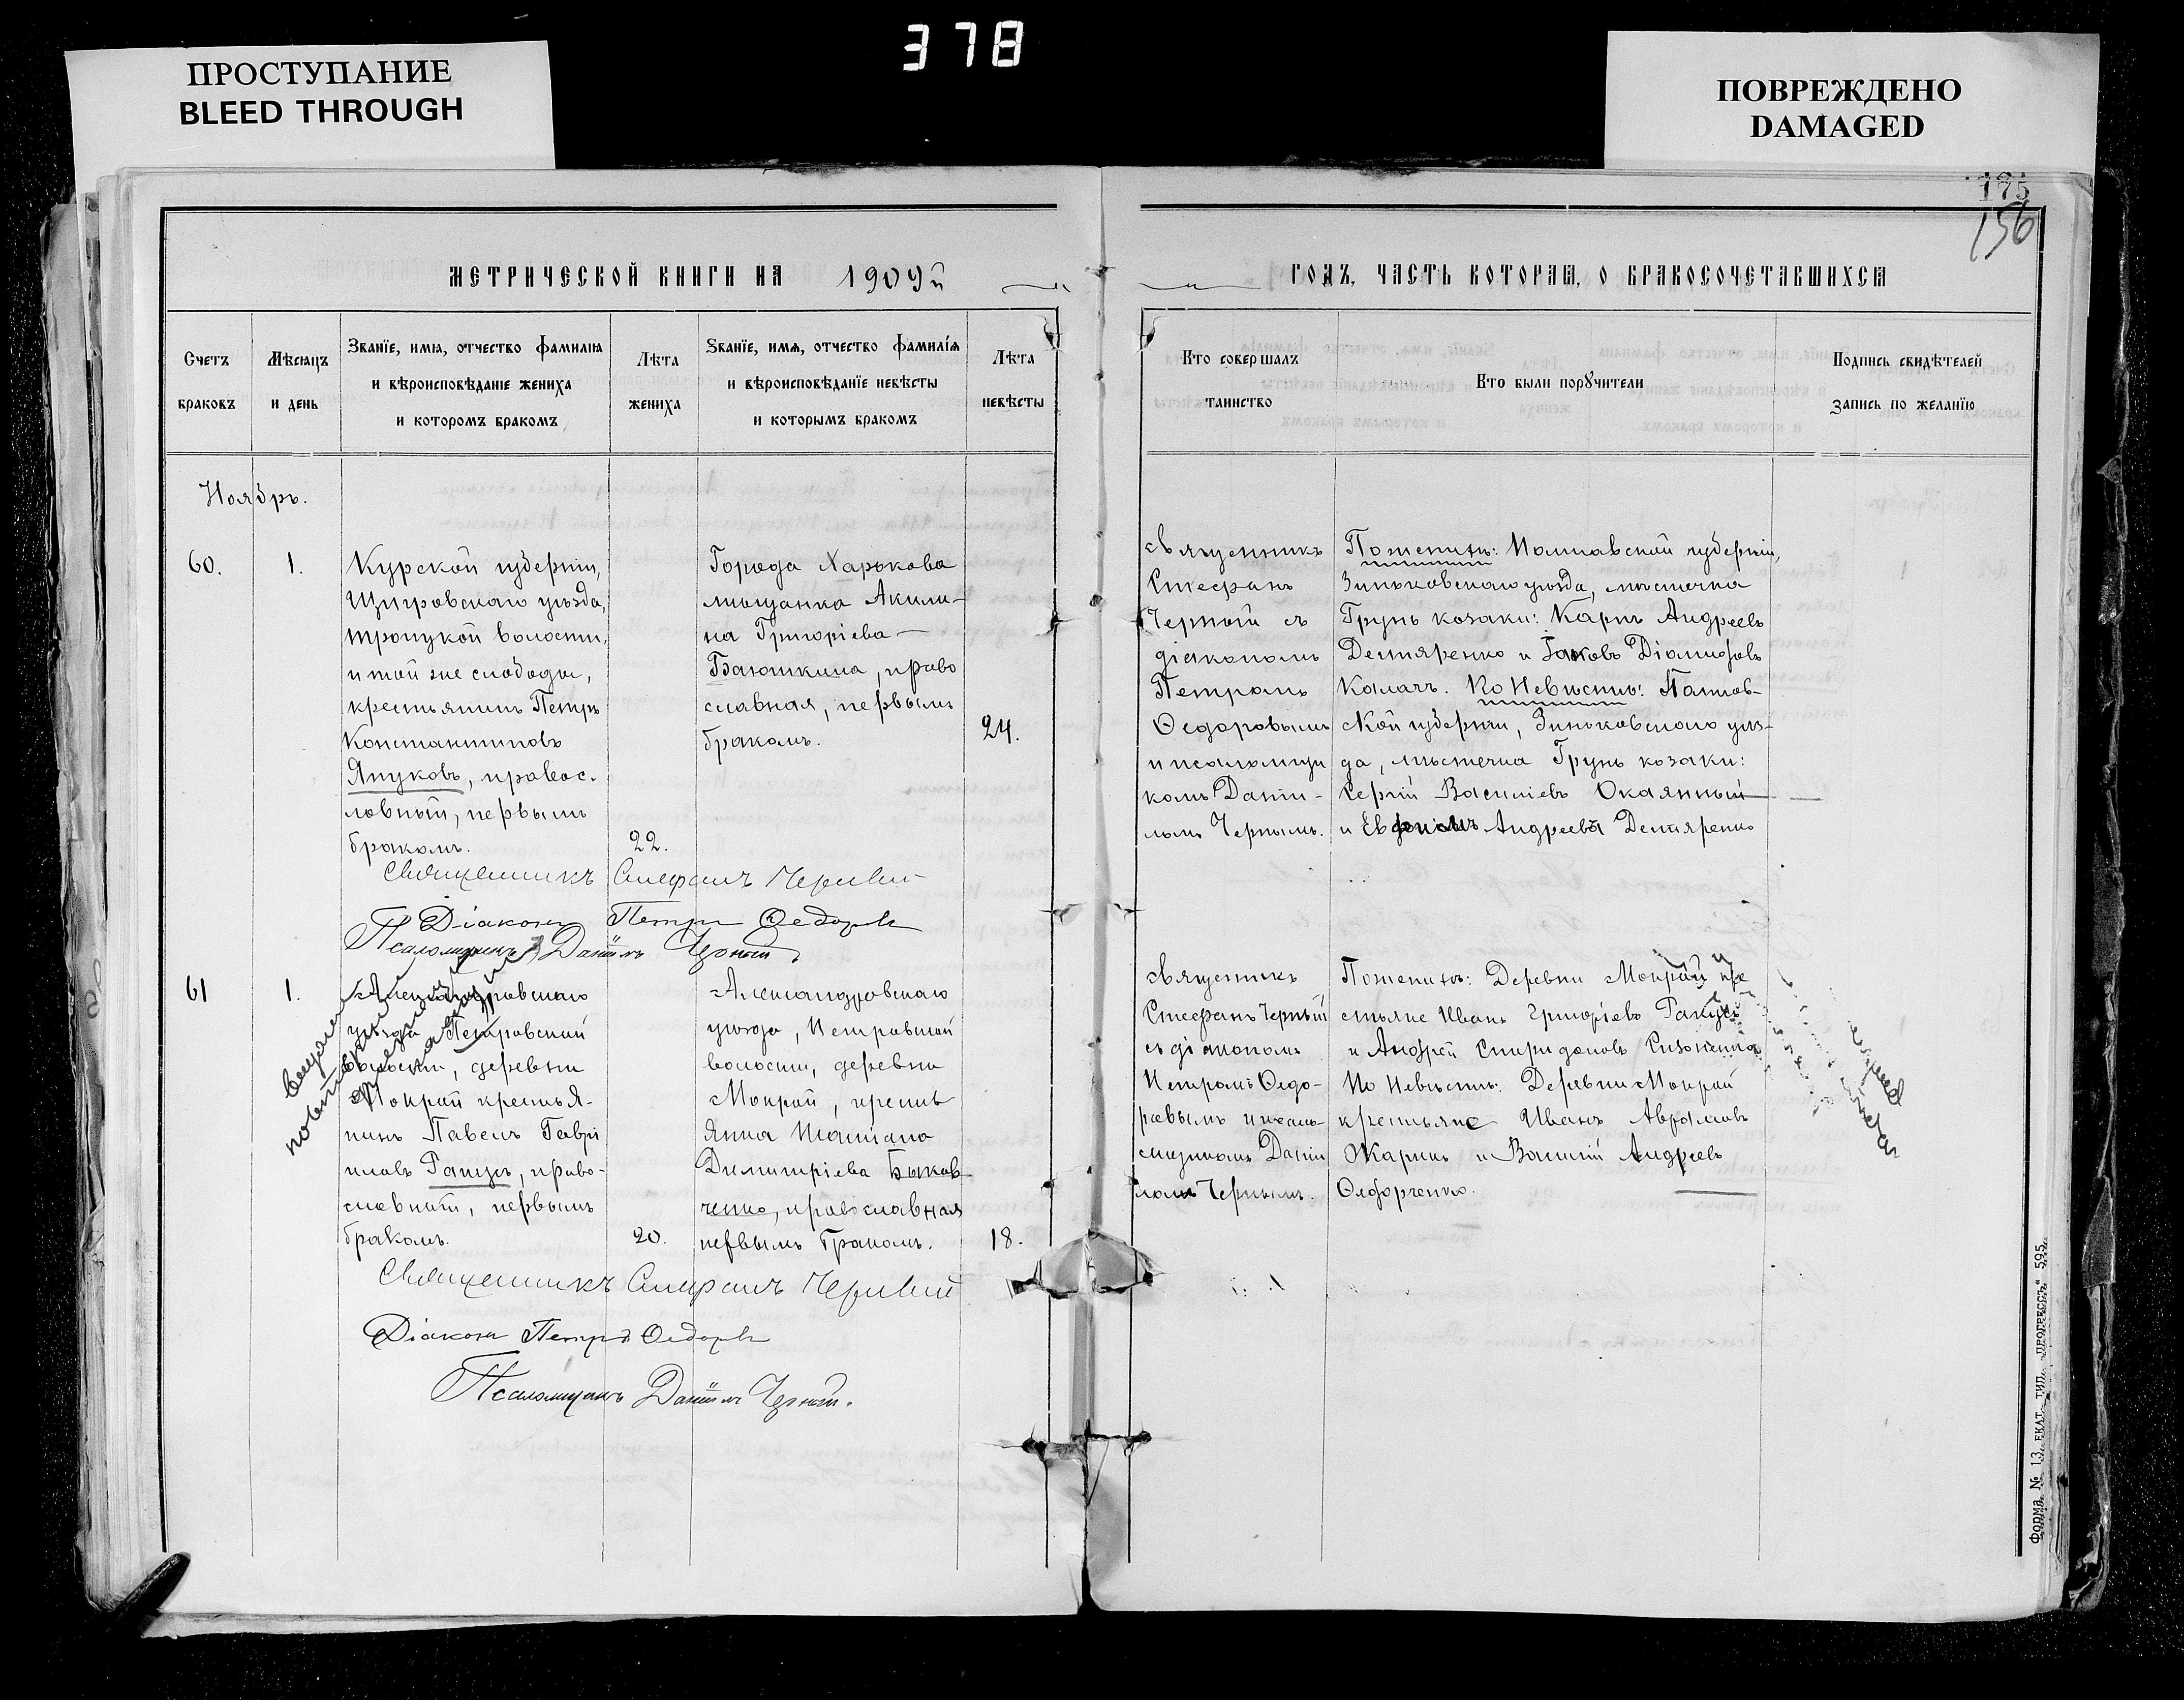 378
ПРОСТУПАНИЕ
BLEED THROUGH
ПОВРЕЖДЕНО
DAMAGED
175
156
МЕТРИЧЕСКОЙ КНИГИ НА 1909й
ГОДЪ, ЧАСТЬ КОТОРАѦ, О БРАКОСОЧЕТАВШИХСѦ
Счетъ
браковъ
Мѣсѧцъ
и день
Званїе, имѧ, отчество фамилїѧ
и вѣроисповѣданїе жениха
и которомъ бракомъ
Лѣта
жениха
Званїе, имѧ, отчество фамилїѧ
и вѣроисповѣданїе невѣсты
и которымъ бракомъ
Лѣта
невѣсты
Кто совершалъ
таинство
Кто были порꙋчители
Подпись свидѣтелей
запись по желанїю
Ноябрь.
60.
1.
Курской губерніи,
Щигровскаго уѣзда,
троицкой волости,
и той же слободы,
крестьянинъ Петръ
Константиновъ
Япуковъ, правос-
лавный, первымъ
бракомъ.
22.
Города Харькова
мѣщанка Акили-
на Григоріева
Баюшкина, право
славная, первымъ
бракомъ.
24.
священникъ
Стефанъ
Черный съ
діакономъ
Петромъ
Ѳедоровымъ
и псаломщи
комъ Даніи-
ломъ Чернымъ.
По жениху: Полтавской губерніи,
Зиньковскаго уѣзда, мѣстечка
Грунь козаки: Карпъ Андреевъ
Дегтяренко и Іаковъ Діомидовъ
Калачъ. По Невѣстѣ: Полтав-
ской губерніи, Зиньковскаго уѣз-
да, мѣстечка Грунь козаки:
Сергій Василіевъ Окаянный
и Андреевъ Дегтяренко
Священникъ Стефанъ Черный
Діаконъ Петръ Ѳедоровъ
Псаломщикъ Даніилъ Черный
61
1.
Александровскаго
уѣзда Петровской
волости, деревни
Мокрой крестья-
нинъ Павелъ Гаврі
иловъ Гапусъ, право-
славный, первымъ
бракомъ.
20.
Александровскаго
уѣзда, Петровской
волости, деревни
Мокрой, крестъ
янка Татіана
Димитріева Быков
ченко, православная
первымъ бракомъ.
18.
священникъ
Стефанъ Черный
съ діакономъ
Петромъ Ѳедо-
ровымъ и псало-
мщикомъ Даніи
ломъ Чернымъ.
По жениху: Деревни Мокрой кре
стьяне Иванъ Григоріевъ Гапусъ
и Андрей Спиридоновъ
По Невѣстѣ: Деревни Мокрой
крестьяне Иванъ Аврамовъ
Жарикъ и Василій Андреевъ
Ѳедорченко.
Священникъ Стефанъ Черный
Діаконъ Петръ Ѳедоровъ
Псаломщикъ Даніилъ Черный.
Форма № 13. ЕКАТ. ТИП. „ПРОГРЕССЪ“ 595.